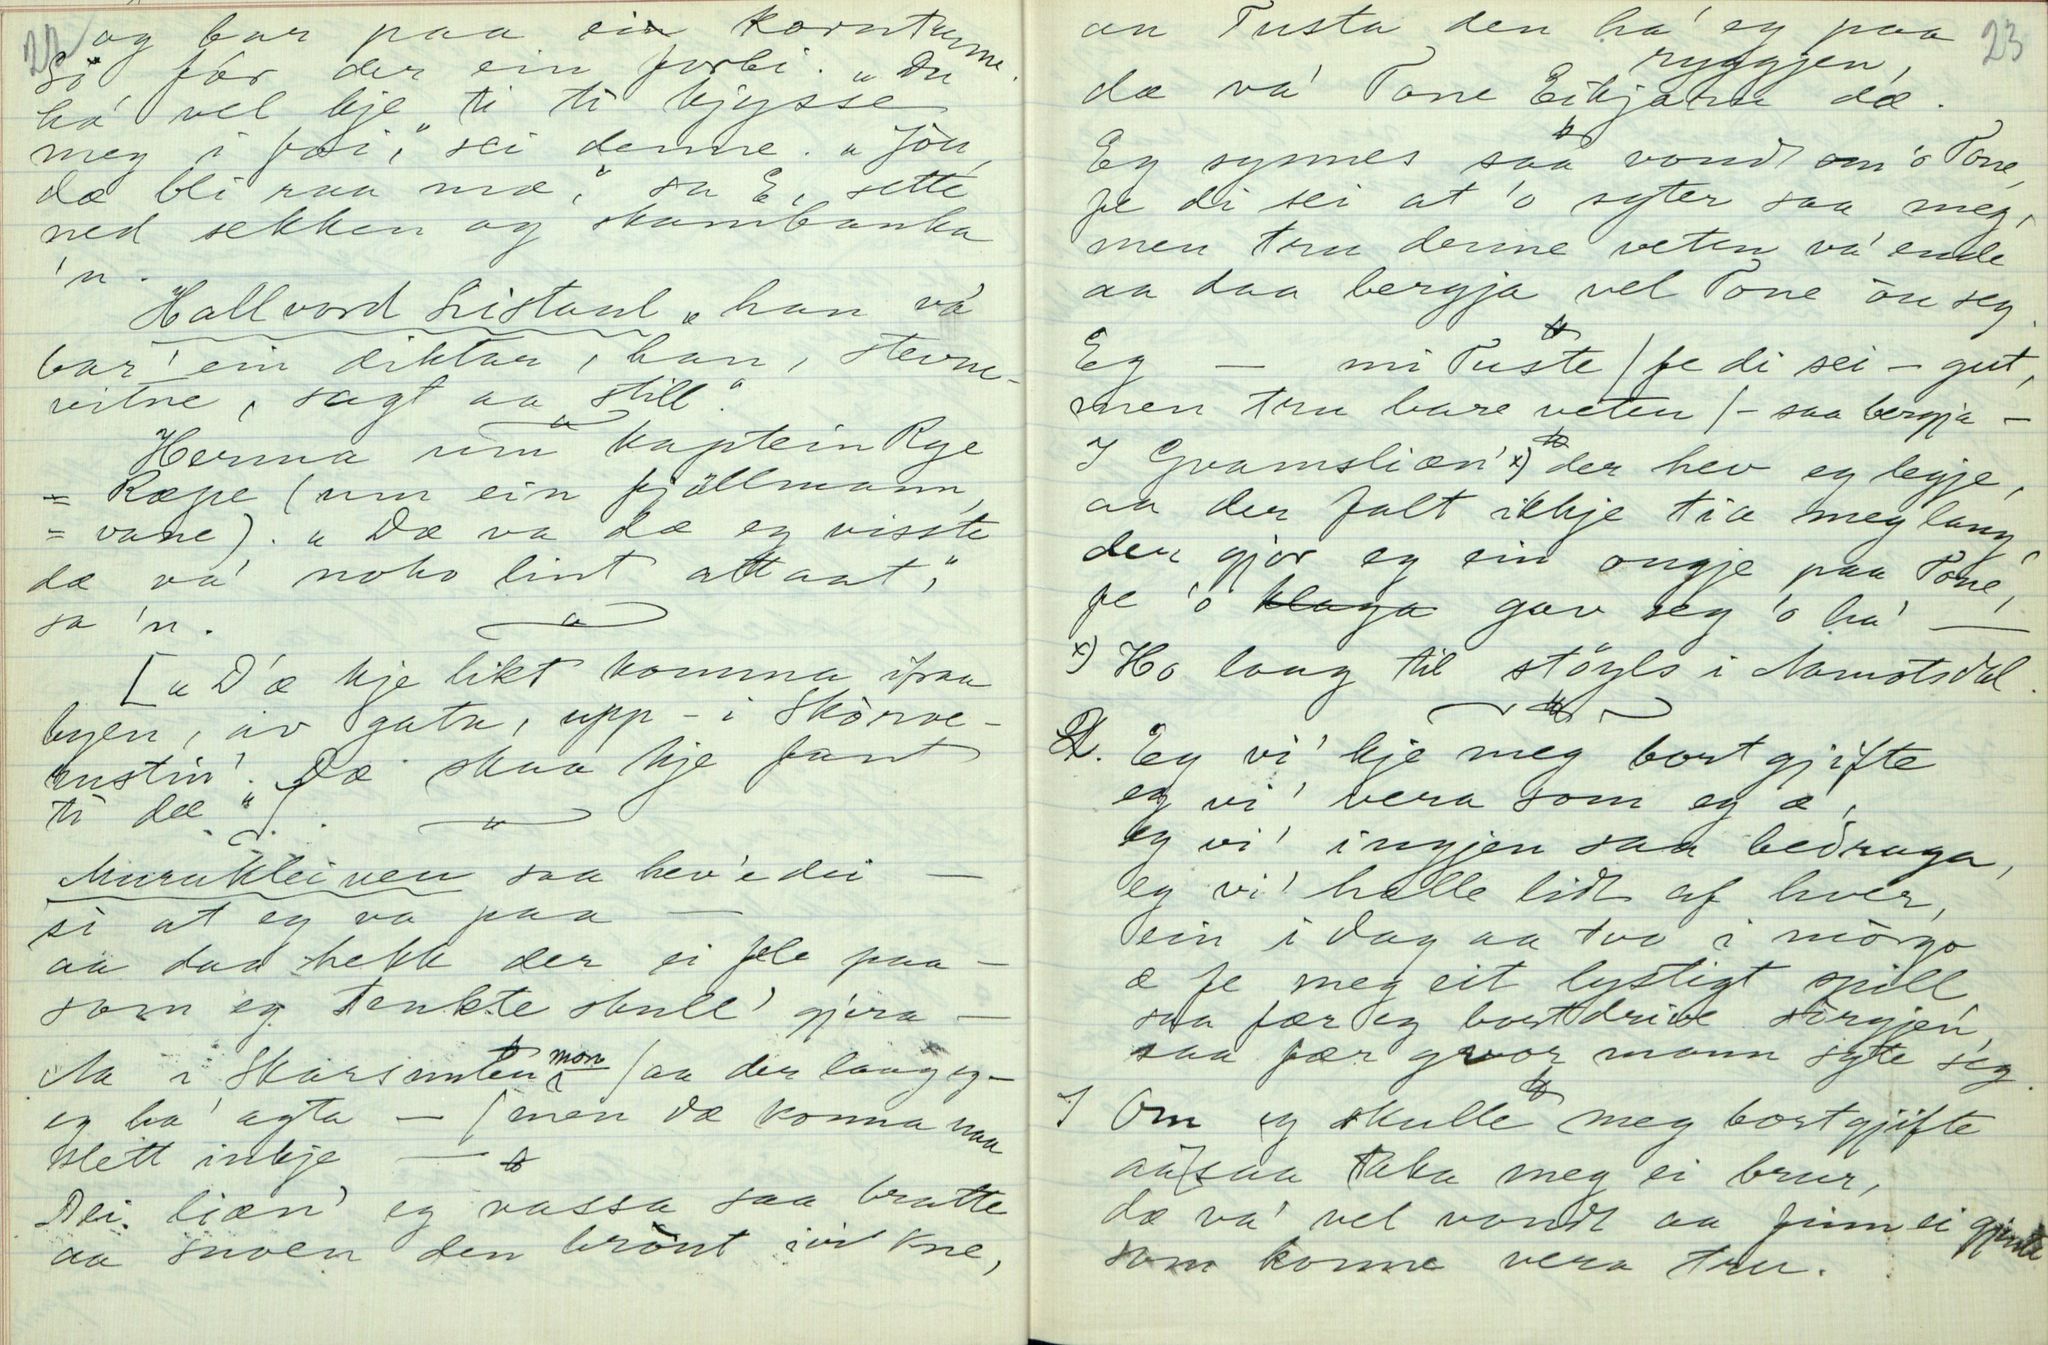 22
og bar paa ein korntunne.
So fór der ein forbi. „Du
há' vel kje ti ti kjysse
meg i foi", sei denne. „Jou,
dæ bli raa mæ," sa E, sette
ned sekken og skambanka
'n.
Hallvord Listaul „han vá
bar' ein diktar, han, stevne-
vitne, sagt aa still".
Herma um kaptein Rye
= Ræpe (um ein fjøllmann,
= vane). „Dæ va dæ eg visste
dæ va' noko lint attaat,"
sa 'n.
[„D'æ kje likt komma ifraa
byen, av gata, upp - i Skörve-
rustin'. Dæ skaa kje fant
ti dæ"]
Murukleiven saa hev'e dei —
si at eg va paa —
aa daa hekk der ei fele paa —
som eg tenkte skull' gjera —
Aa i Skarsnuten i mon / aa der laag eg —
eg ha' agta — / men dæ konna naa
slett inkje —
Dei. liæn' eg vassa saa bratte
aa snoen den brönt ivi kne,
23
an Tusta den ha' eg paa
ryggjen,
dæ vá' Tone Eikjaru dæ.
Eg synnes saa vondt om 'o Tone,
fe di sei at 'o syter saa meg,
men tru denne veten va' ende
aa daa bergja vel Tone óu seg.
Eg — mi Tuste / fe di sei — gut,
men tru bare veten / — saa bergja —
I Gvamsliæn' x) der hev eg legje,
aa der falt ikkje tia meg lang,
der gjor eg ein ongje paa Tone,
fe 'o klaga gav seg 'o ha' —
x) Ho laag til støyls i Aamotsdal.
D. Eg vi' kje meg bortgjifte
eg vi' vera som eg æ',
eg vi' ingjen saa bedraga,
eg vi' halle lidt af hver,
ein i dag aa tvo i mórgo
æ fe meg eit lystigt spill
saa fær eg bortdrive sorgjen,
saa fær gvor mann syte seg.
I Om eg skulle meg bortgjifte
aa saa taka meg ei brur,
dæ va' vel vondt aa finn ei gjente
som konne vera tru.